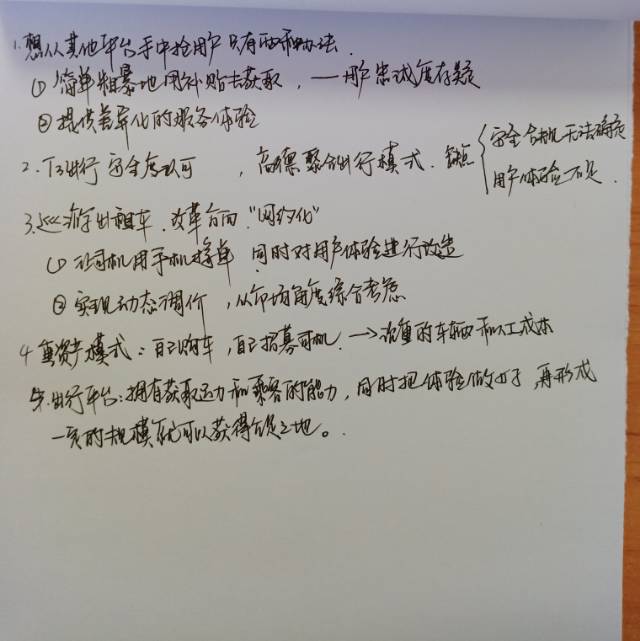 1.想从其他平台手中抢用户只有两种办法.
① 简单粗暴地用补贴去获取,——用户忠诚度存疑
② 提供差异化的服务体验
2.T3出行安全度认可,高德聚合出行模式.缺点{安全合规无法确定
用户体验不足.
3.巡游出租车.改革方向"网约化"
① 让司机用手机接单 同时对用户体验进行改造
② 实现动态调价,从市场角度综合考虑
4 重资产模式:自己购车,自己招募司机.→沉重的车辆和人工成本
5.出行平台:拥有获取运力和乘客的能力,同时把体验做好了,再形成
一定的规模就可以获得立足之地。.